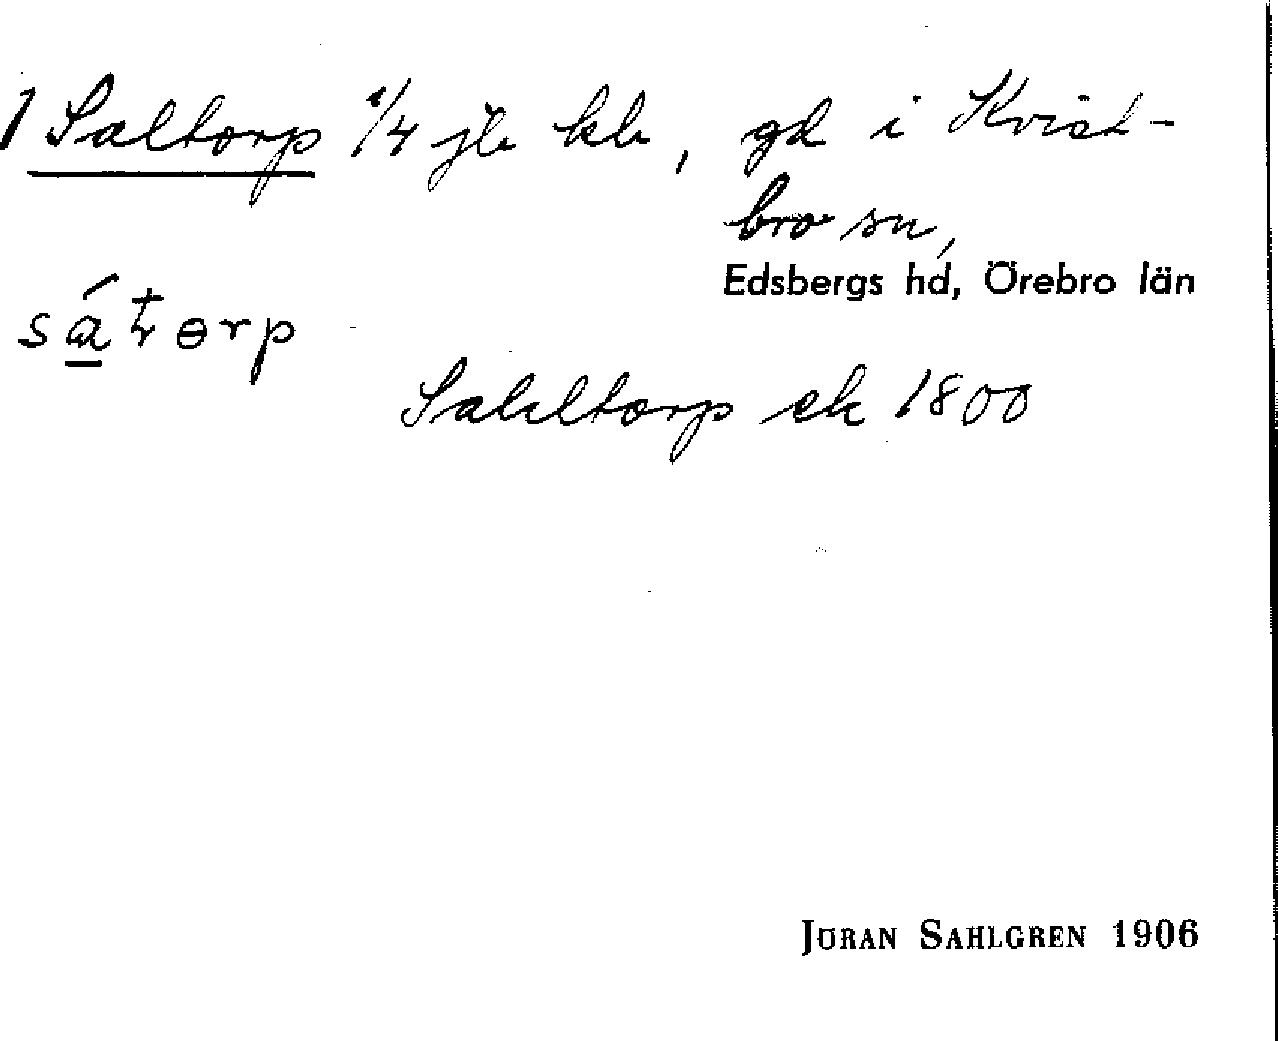 1 Saltorp 1/4 jb kb, gd i Kvist-
bro sn,
Edsbergs hd, Örebro län
Sahltorp ek 1800
JÖRAN SAHLGREN 1906